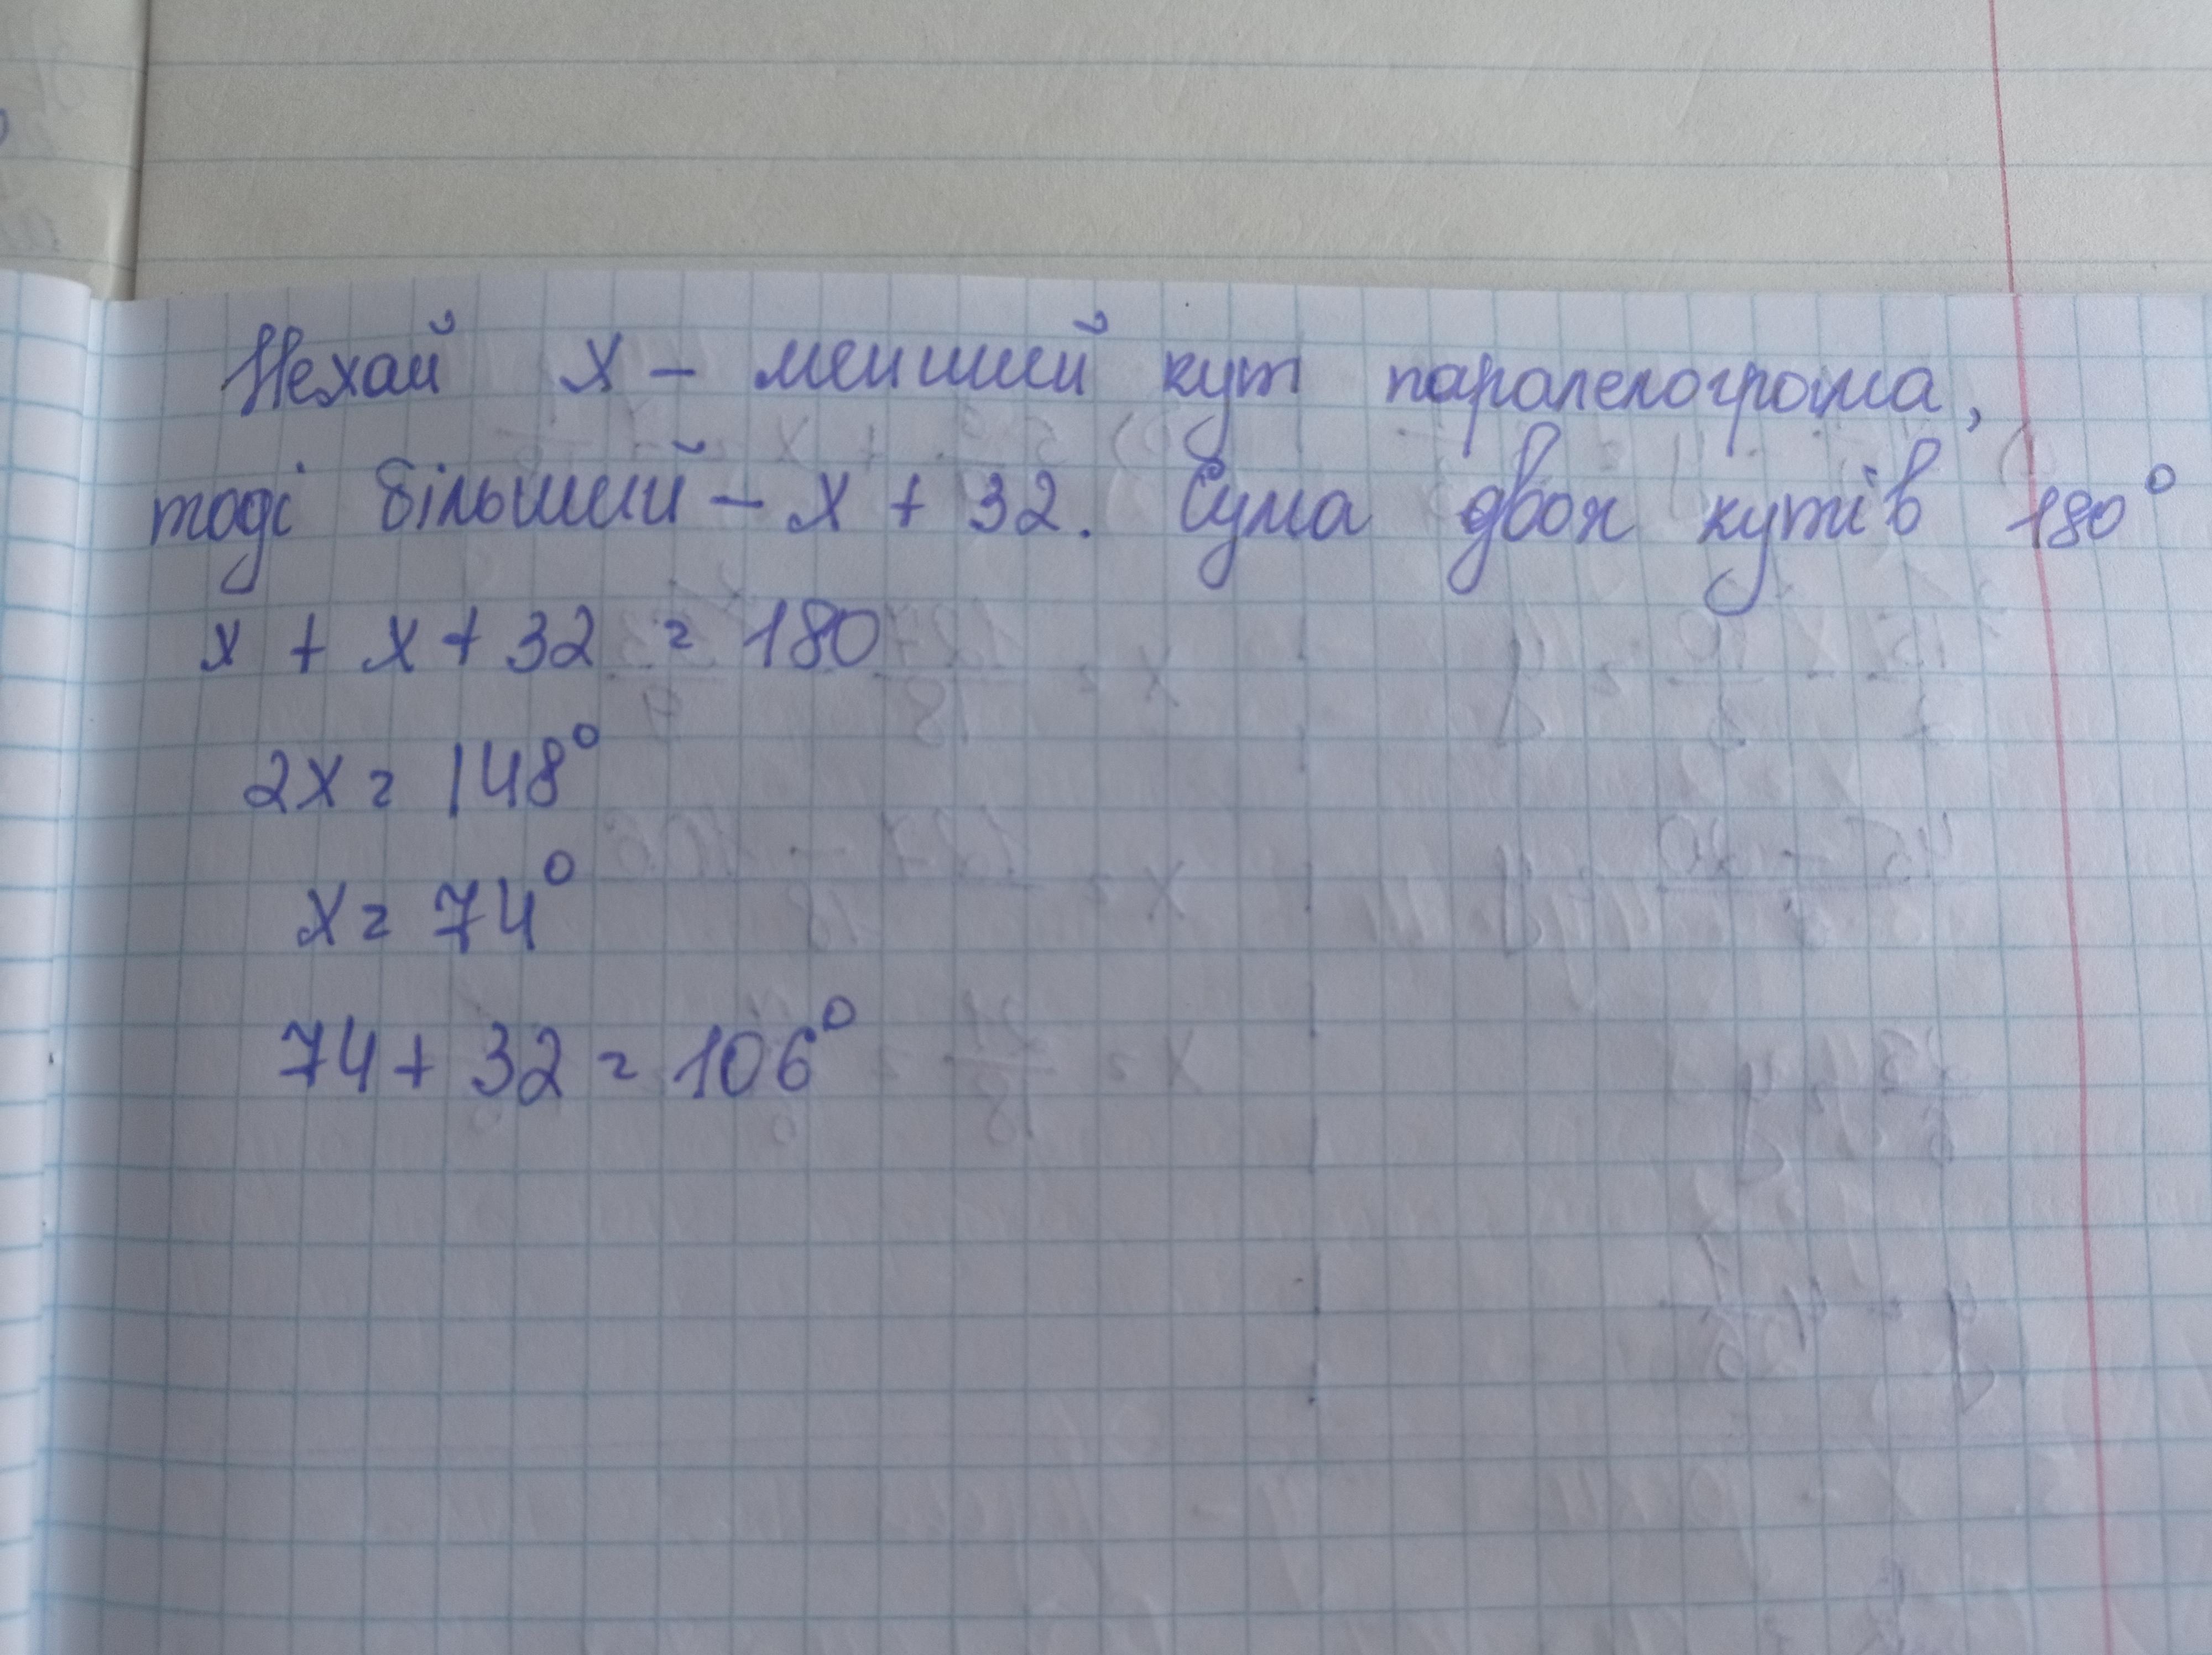 Нехай х – менший кут паралелограма,
тоді більший – х + 32. Сума двох кутів 180°
х + х + 32 = 180
2х = 148°
х = 74°
74 + 32 = 106°